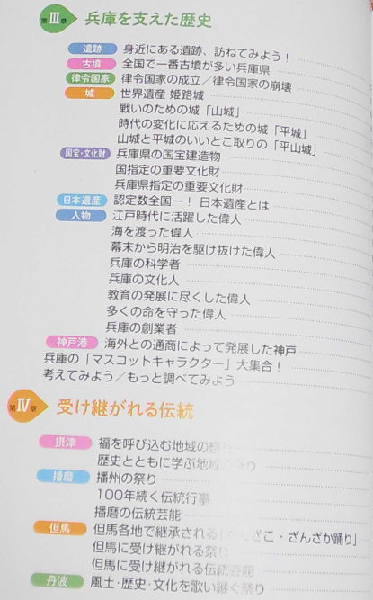 第Ⅲ章 兵庫を支えた歴史
遺跡 身近にある遺跡、訪ねてみよう！
古墳 全国で一番古墳が多い兵庫県
律令国家 律令国家の成立／律令国家の崩壊
城 世界遺産 姫路城
戦いのための城「山城」
時代の変化に応えるための城「平城」
山城と平城のいいとこ取りの「平山城」
国宝・文化財 兵庫県の国宝建造物
国指定の重要文化財
兵庫県指定の重要文化財
日本遺産 認定数全国一！ 日本遺産とは
人物 江戸時代に活躍した偉人
海を渡った偉人
幕末から明治を駆け抜けた偉人
兵庫の科学者
兵庫の文化人
教育の発展に尽くした偉人
多くの命を守った偉人
兵庫の創業者
神戸港 海外との通商によって発展した神戸
兵庫の「マスコットキャラクター」大集合！
考えてみよう／もっと調べてみよう
第Ⅳ章 受け継がれる伝統
摂津 福を呼び込む地域の祭り
歴史とともに学ぶ地域の祭り
播磨 播州の祭り
100年続く伝統行事
播磨の伝統芸能
但馬 但馬各地で継承される「ざんざこ・ざんざか踊り」
但馬に受け継がれる祭り
但馬に受け継がれる伝統芸能
丹波 風土・歴史・文化を歌い継ぐ祭り